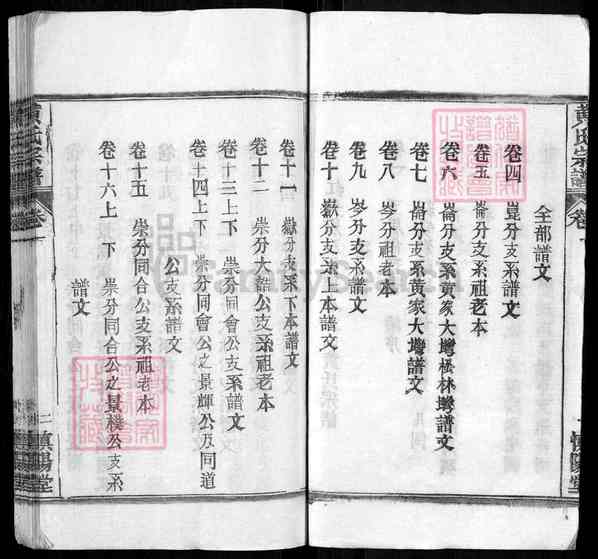 全部譜文
卷四　崑分支系譜文
卷五　崙分支系祖老本
卷六　崙分支系黄家大塆松林塆譜文
卷七　崙分支系黄家大塆譜文
卷八　岑分祖老本
卷九　岑分支系譜文
卷十　嶽分支系上本譜文
卷十一　嶽分支系下本譜文
卷十二　崇分大諧公支系祖老本
卷十三上下　崇分同會公支系譜文
卷十四上下　崇分同會公之景輝公及同道
公支系譜文
卷十五　崇分同合公支系祖老本
卷十六上下　崇分同合公之景樸公支系
譜文
黄氏宗譜
卷一
慎陽堂
黄氏宗譜
卷
二
慎陽堂
FamilySearch